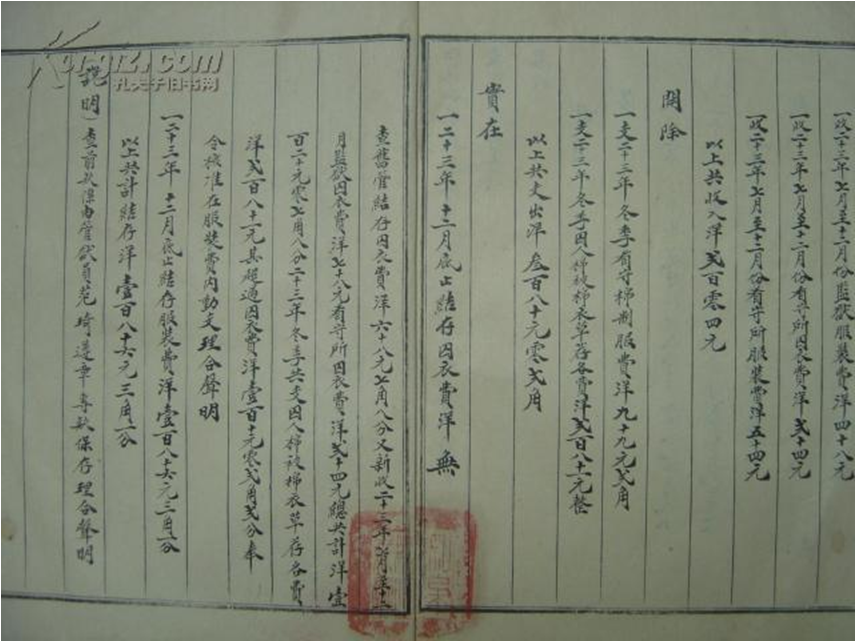 一收二十三年七月至十二月份監獄服裝費洋四十八元
一收二十三年七月至十二月份有守所囚衣費洋弍十四元
一收二十三年七月至十二月份有守所服裝費洋五十四元
以上共收入洋弍百零四元
開除
一支二十三年冬季有守棉制服費洋九十九元弍角
一支二十三年冬季囚人棉被棉衣草荐各費洋弍百八十一元整
以上共支出洋叁百八十元零弍角
實在
一二十三年十二月底止結存囚衣費洋無
查舊管結存囚衣費洋六十八元七角八分又新收二十三年七月至十二
月監獄囚衣費洋七十八元有守所囚衣費洋弍十四元總共計洋壹
百七十元零七角八分二十三年冬季共支囚人棉被棉衣草荐各費
洋弍百八十一元其超過囚衣費洋壹百十元零弍角弍分奉
令核准在服裝費內動支理合聲明
一二十三年十二月底止結存服裝費洋壹百八十六元三角一分
以上共計結存洋壹百八十六元三角一分
說明)查前款係由管獄員范琦遵章專款保存理合聲明
Kongfz.com
孔夫子旧书网